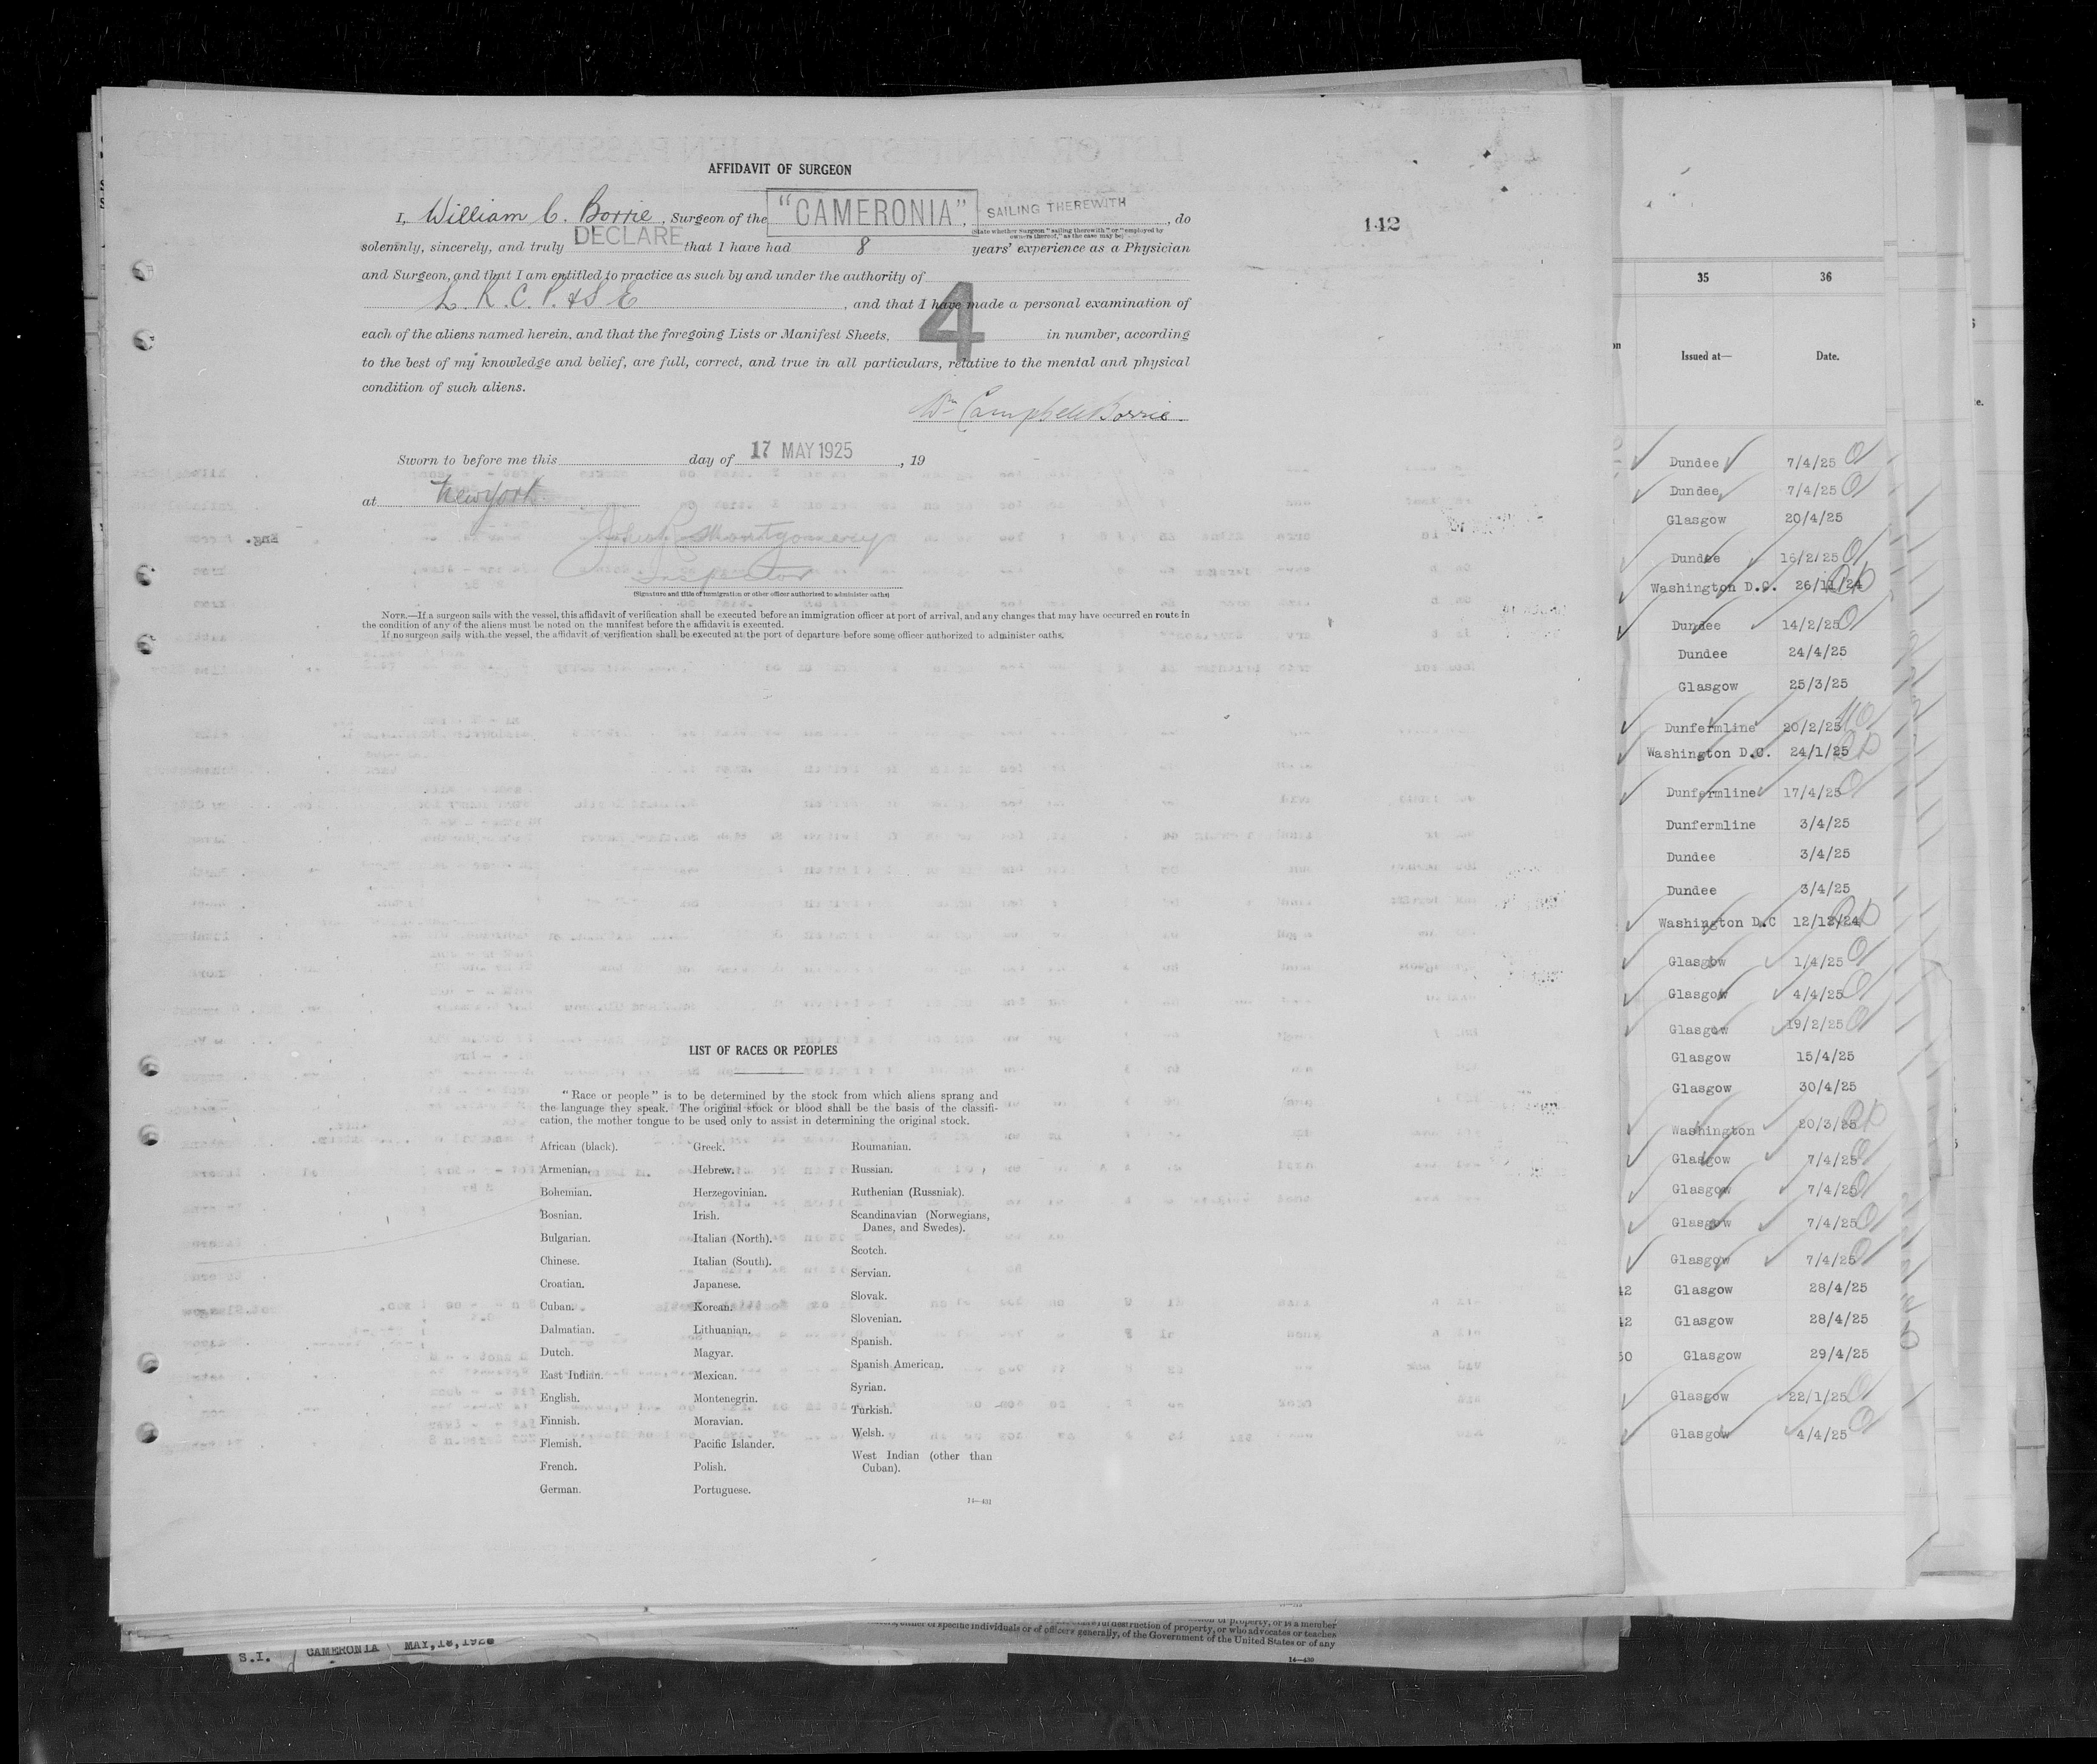 AFFIDAVIT OF SURGEON
I, William C. Borrie, Surgeon of the "CAMERONIA", SAILING THEREWITH, do
(State whether Surgeon "sailing therewith" or "employed by owners thereof," as the case may be)
solemnly, sincerely, and truly DECLARE that I have had 8 years' experience as a Physician
and Surgeon, and that I am entitled to practice as such by and under the authority of
L. R. C. P. & S. E, and that I have made a personal examination of
each of the aliens named herein, and that the foregoing Lists or Manifest Sheets, 4 in number, according
to the best of my knowledge and belief, are full, correct, and true in all particulars, relative to the mental and physical
condition of such aliens.
Wm Campbell Borrie
Sworn to before me this day of 17 MAY 1925, 19
at New York
John R. Montgomery
Inspector
(Signature and title of immigration or other officer authorized to administer oaths)
NOTE.—If a surgeon sails with the vessel, this affidavit of verification shall be executed before an immigration officer at port of arrival, and any changes that may have occurred en route in
the condition of any of the aliens must be noted on the manifest before the affidavit is executed.
If no surgeon sails with the vessel, the affidavit of verification shall be executed at the port of departure before some officer authorized to administer oaths.
142
LIST OF RACES OR PEOPLES
"Race or people" is to be determined by the stock from which aliens sprang and
the language they speak. The original stock or blood shall be the basis of the classifi-
cation, the mother tongue to be used only to assist in determining the original stock.
African (black).
Armenian.
Bohemian.
Bosnian.
Bulgarian.
Chinese.
Croatian.
Cuban.
Dalmatian.
Dutch.
East Indian.
English.
Finnish.
Flemish.
French.
German.
Greek.
Hebrew.
Herzegovinian.
Irish.
Italian (North).
Italian (South).
Japanese.
Korean.
Lithuanian.
Magyar.
Mexican.
Montenegrin.
Moravian.
Pacific Islander.
Polish.
Portuguese.
Roumanian.
Russian.
Ruthenian (Russniak).
Scandinavian (Norwegians,
Danes, and Swedes).
Scotch.
Servian.
Slovak.
Slovenian.
Spanish.
Spanish American.
Syrian.
Turkish.
Welsh.
West Indian (other than
Cuban).
14—431
35 36
Issued at— Date.
Dundee 7/4/25
Dundee 7/4/25
Glasgow 20/4/25
Dundee 16/2/25
Washington D.C. 26/11/24
Dundee 14/2/25
Dundee 24/4/25
Glasgow 25/3/25
Dunfermline 20/2/25
Washington D.C. 24/1/25
Dunfermline 17/4/25
Dunfermline 3/4/25
Dundee 3/4/25
Dundee 3/4/25
Washington D.C 12/12/24
Glasgow 1/4/25
Glasgow 4/4/25
Glasgow 19/2/25
Glasgow 15/4/25
Glasgow 30/4/25
Washington 20/3/25
Glasgow 7/4/25
Glasgow 7/4/25
Glasgow 7/4/25
Glasgow 7/4/25
42 Glasgow 28/4/25
42 Glasgow 28/4/25
50 Glasgow 29/4/25
Glasgow 22/1/25
Glasgow 4/4/25
destruction of property, or is a member
either of specific individuals or of officers generally, of the Government of the United States or of any
of property, or who advocates or teaches
14—430
S.I. CAMERONIA MAY,18,1925